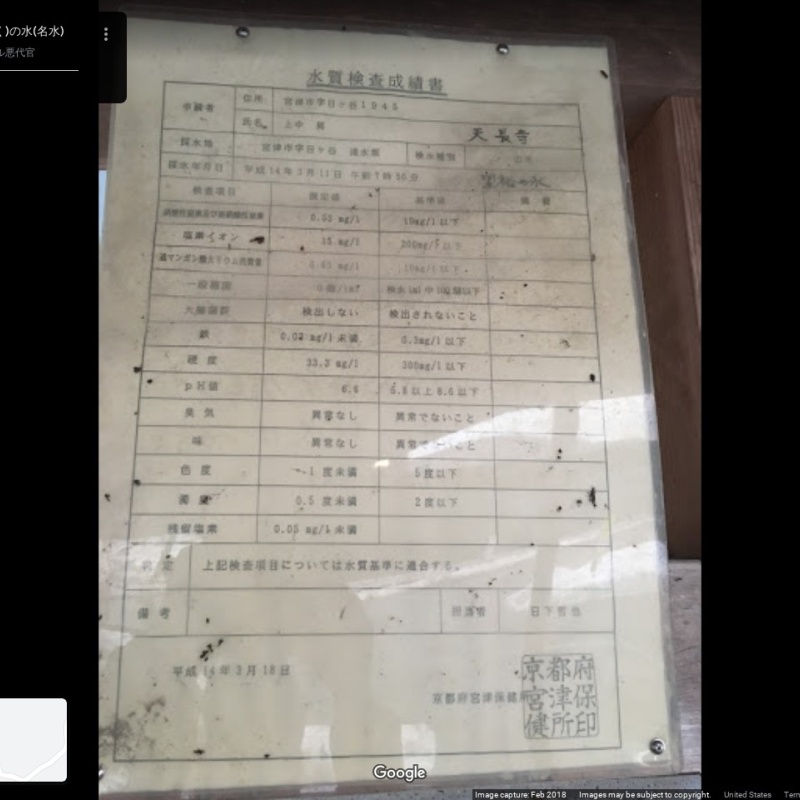 )の水(名水)
ル悪代官
水質検査成績書
申請者 住所 宮津市字日ヶ谷1945
氏名 上中
天長寺
採水地 宮津市字日ヶ谷 湧水
採水年月日 平成14年3月11日 午前7時50分
検査項目 測定値 基準値 備考
0.53 mg/l 10mg/l以下
塩素イオン 15 mg/l 200mg/l以下
過マンガン酸カリウム消費量 10mg/l以下
一般細菌 検水1ml中100個以下
大腸菌群 検出しない 検出されないこと
鉄 0.02 mg/l未満 0.3mg/l以下
硬度 33.3 mg/l 300mg/l以下
pH値 6.6 5.8以上8.6以下
臭気 異常なし 異常でないこと
味 異常なし 異常でないこと
色度 1 度未満 5度以下
濁度 0.5 度未満 2度以下
残留塩素 0.05 mg/l未満
判定 上記検査項目については水質基準に適合する。
備考 / 担当者 日下
平成14年3月18日
京都府宮津保健所
京都府
宮津保
健所印
Google
Image capture: Feb 2018 Images may be subject to copyright. United States Term